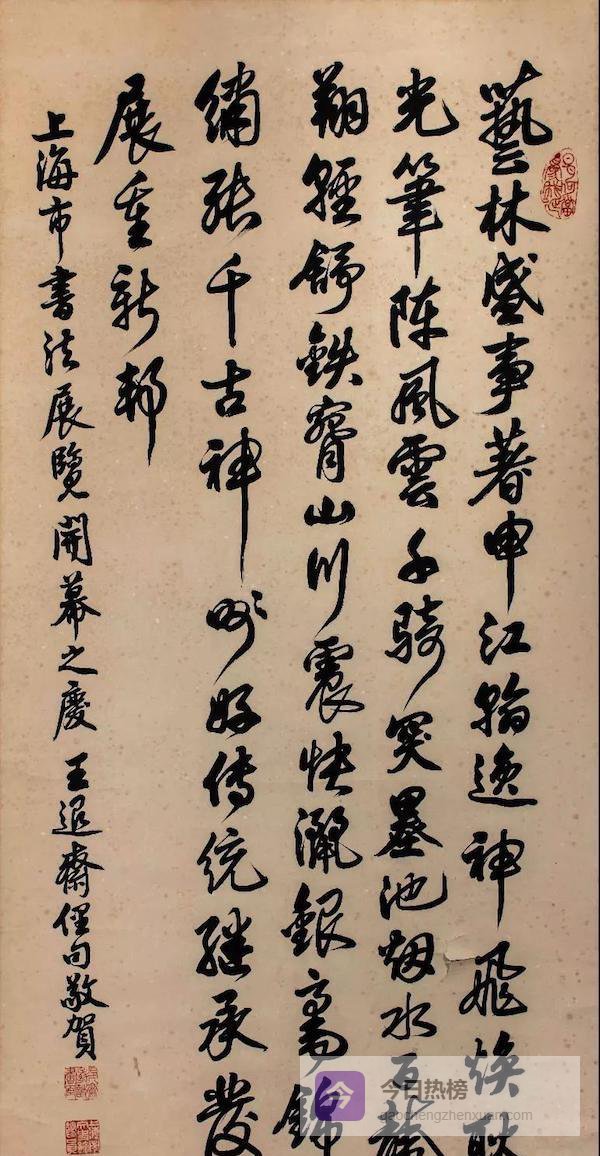 藝林盛事著申江翰逸神飛煥耿
光筆陈風雲千騎突墨池烟水百龍
翔輕舒鉄臂山川震快灑銀毫錦
繡張千古神州好傳统繼承發
展重新邦
上海市書法展覽開幕之慶 王退齋俚句敬賀
今 今日热榜
gaochengzhenxuan.com